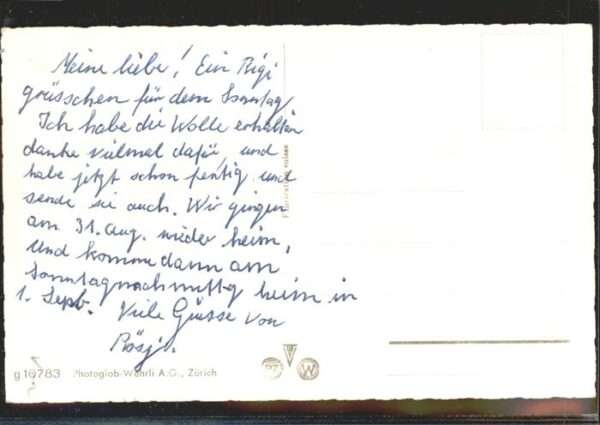 Meine liebe! Ein Rigi
grüsschen für dem Sonntag
Ich habe die Wolle erhalten
danke vielmal dafür, und
habe jetzt schon fertig und
sende sie auch. Wir gingen
am 31. Aug. wieder heim,
und komme dann am
Sonntagnachmittag heim in
1. Sept. Viele Grüsse von
Rösj.
g 16783 Photoglob-Wehrli A.G., Zürich
PZ W